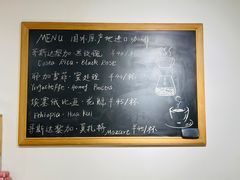 MENU 国外原产地进口咖啡
哥斯达黎加·黑玫瑰 ￥45/杯
Costa Rica · Black Rose
耶加雪菲·蜜处理 ￥45/杯
Yirgacheffe · Honey
埃塞俄比亚·花魁 ￥45/杯
Ethiopia · Hua kui
哥斯达黎加·莫扎特 Mozart ￥45/杯